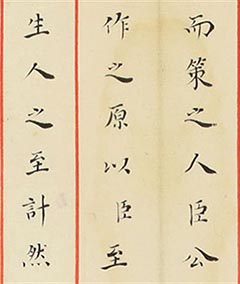 而策之人臣公
作之原以臣至
生人之至計然